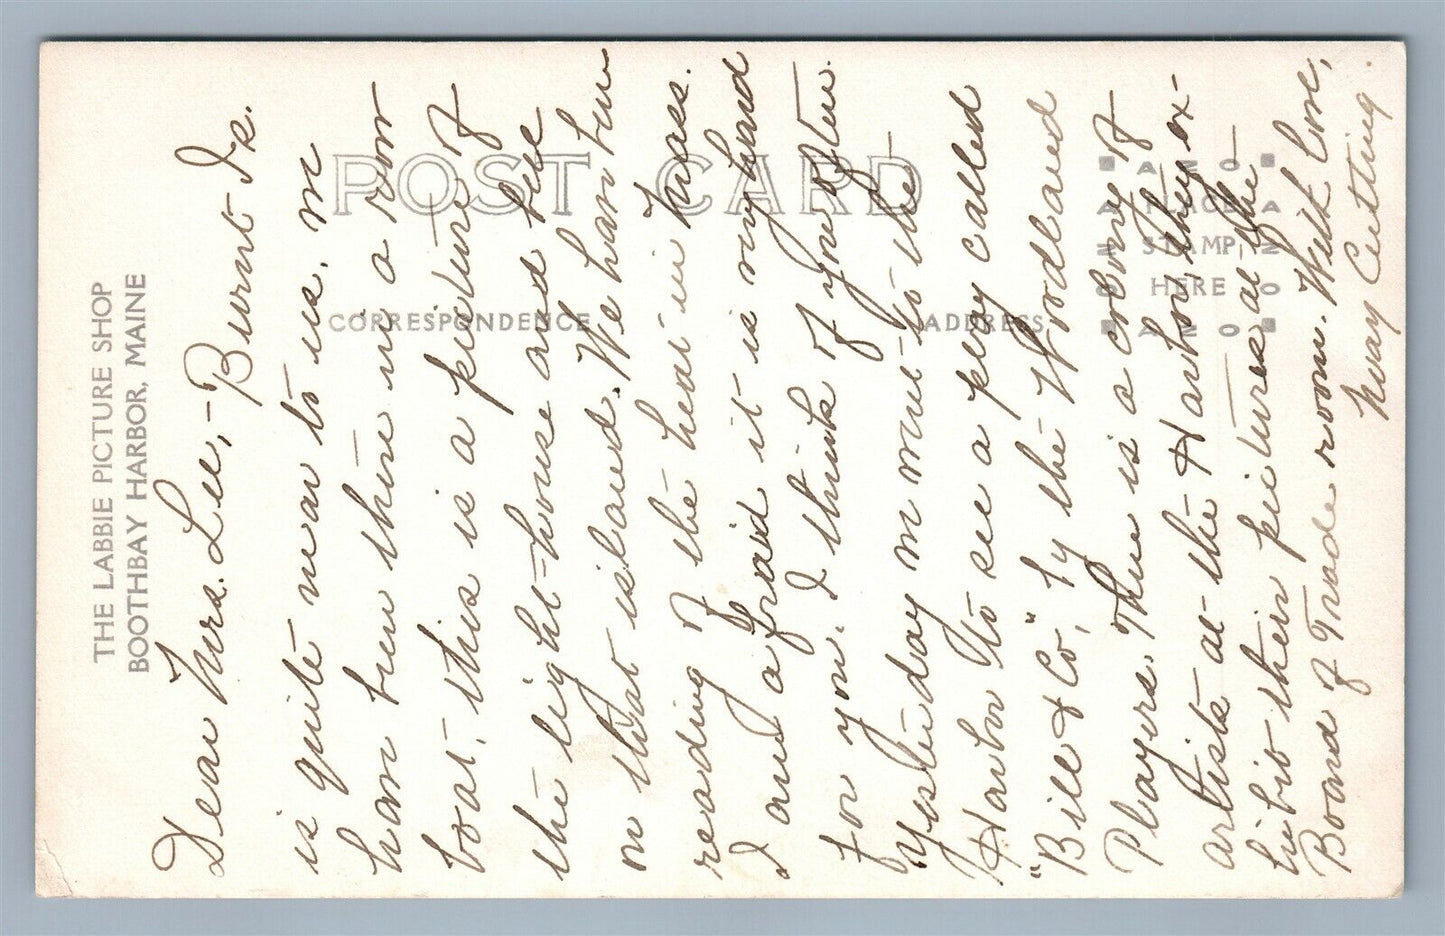 THE LABBIE PICTURE SHOP
BOOTHBAY HARBOR, MAINE
POST CARD
CORRESPONDENCE
ADDRESS
AZO
PLACE
STAMP
HERE
AZO
Dear Mrs. Lee, - Burnt Is.
is quite near to us. We
have been there in a row
boat. this is a picture of
the light-house and bell
on that island. We have been
reading of the heat in Mass.
and I am afraid it is very hard
for you. I think of you often.
Yesterday we went to the
Harbor to see a play called
"Bill & Co," by the Woodland
Players. There is a colony of
artists at the Harbor, they ex-
hibit their pictures at the
Board of Trade room. With love,
May Cutting.